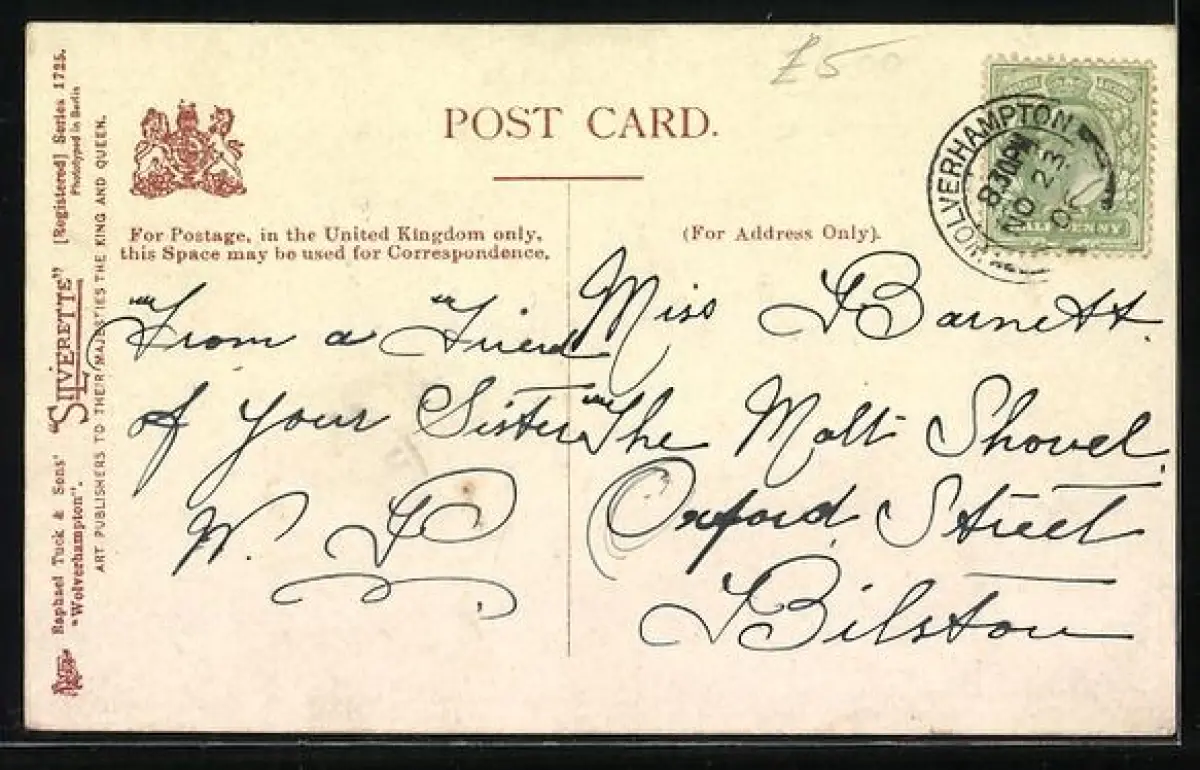 £5
POST CARD.
For Postage, in the United Kingdom only,
this Space may be used for Correspondence.
(For Address Only).
WOLVERHAMPTON
8.30PM
NO 23
HALFPENNY
From a Friend
of your Sister
W.
Miss Barnett.
The Malt Shovel
Oxford Street
Bilston
Raphael Tuck & Sons' "SILVERETTE" [Registered] Series 1725.
"Wolverhampton". Phototyped in Berlin
ART PUBLISHERS TO THEIR MAJESTIES THE KING AND QUEEN.